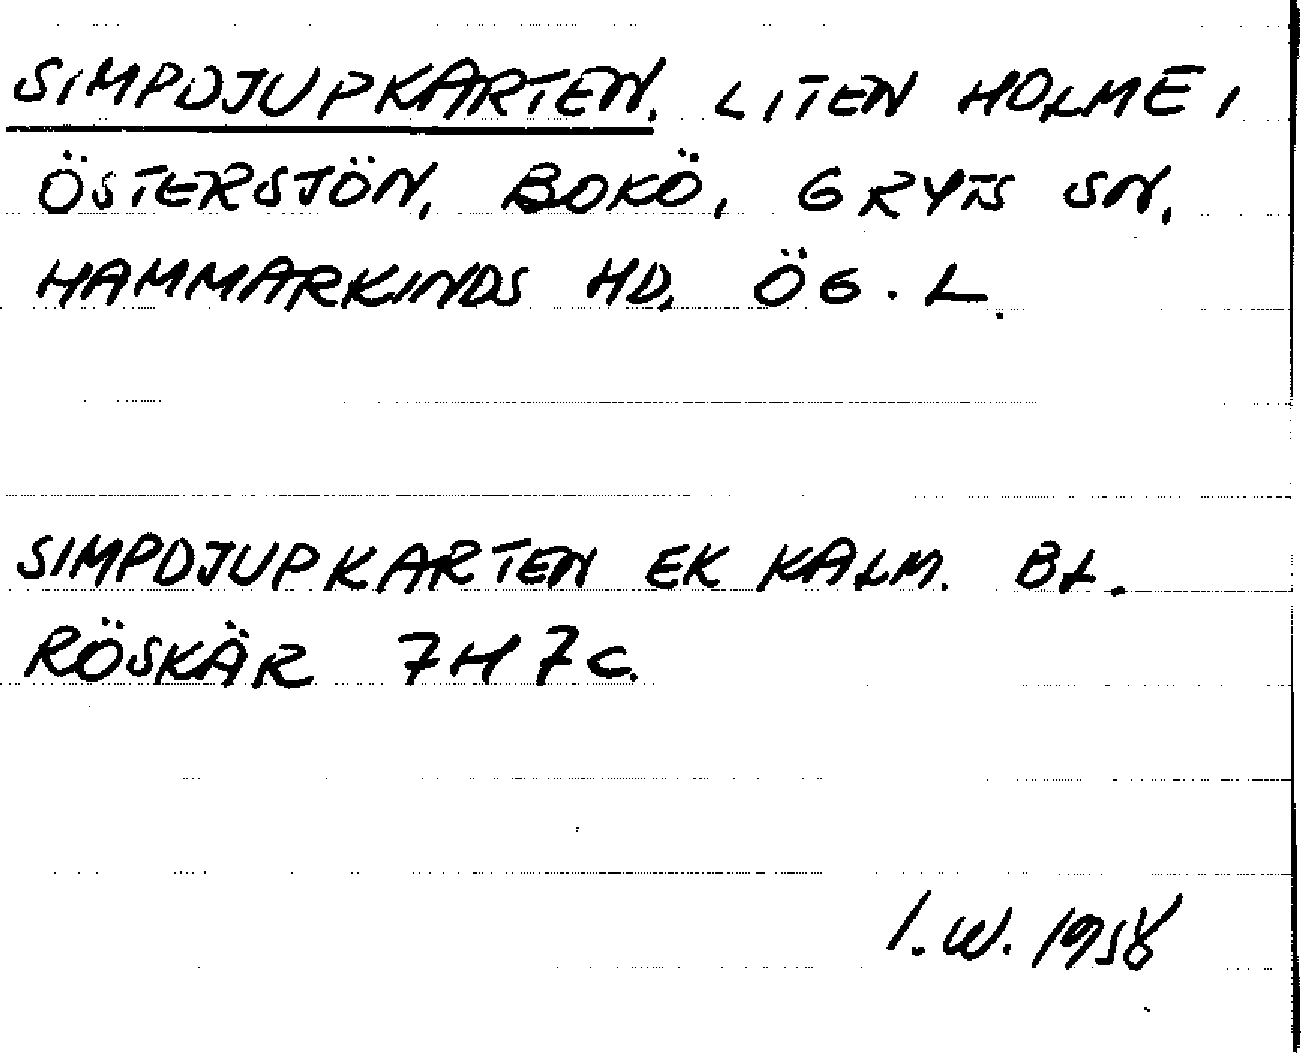 SIMPDJUPKARTEN. LITEN HOLME I
ÖSTERSJÖN, BOKÖ, GRYTS SN,
HAMMARKINDS HD, ÖG. L.
SIMPDJUPKARTEN EK KALM. BL.
RÖSKÄR 7H7C.
I.W. 1958